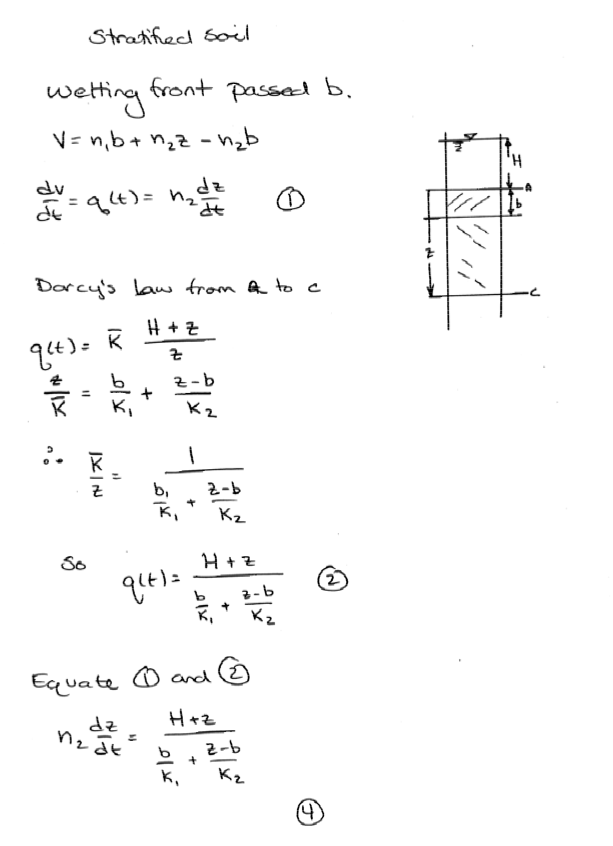 Stratified Soil
Wetting front passed b.
V = n₁b + n₂z - n₂b
dv/dt = q(t) = n₂ dz/dt ①
H
A
b
z
C
Darcy's Law from A to C
q(t) = K̅ (H + z)/z
z/K̅ = b/K₁ + (z-b)/K₂
∴ K̅/z = 1/(b₁/K₁ + (z-b)/K₂)
So q(t) = (H + z)/(b/K₁ + (z-b)/K₂) ②
Equate ① and ②
n₂ dz/dt = (H+z)/(b/K₁ + (z-b)/K₂)
④